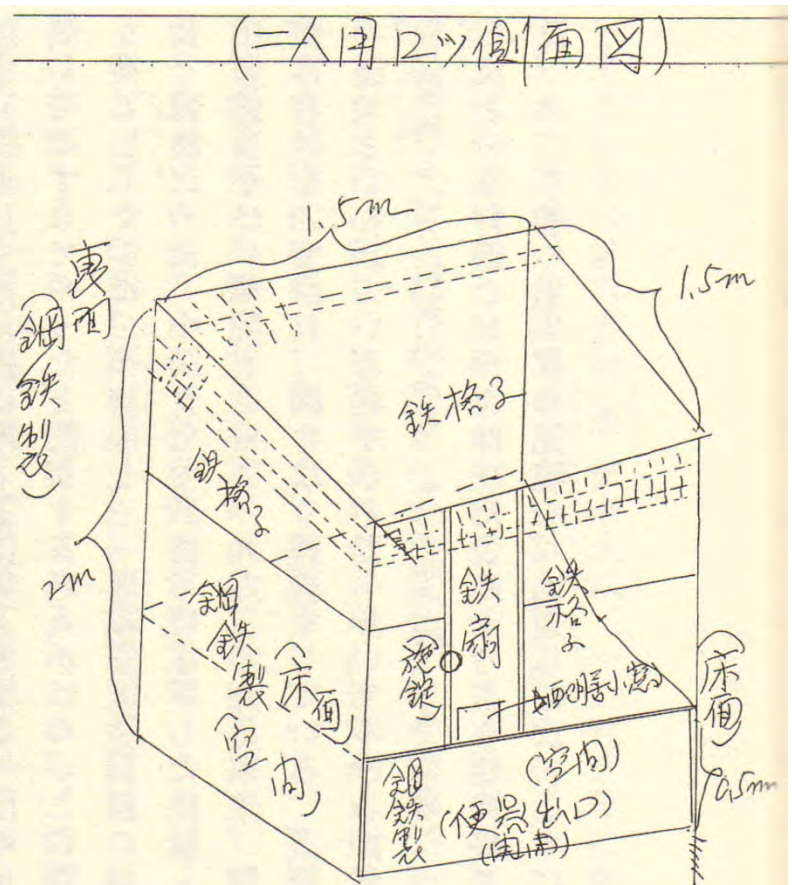 (二人用ロツ側面図)
1.5m
1.5m
裏面
(鋼鉄製)
2m
鉄格子
鉄格子
鋼鉄製(床面)
(空間)
(施錠)
鉄扇
鉄格子
(床面)
0.5m
鋼鉄製
(空間)
(便器出口)